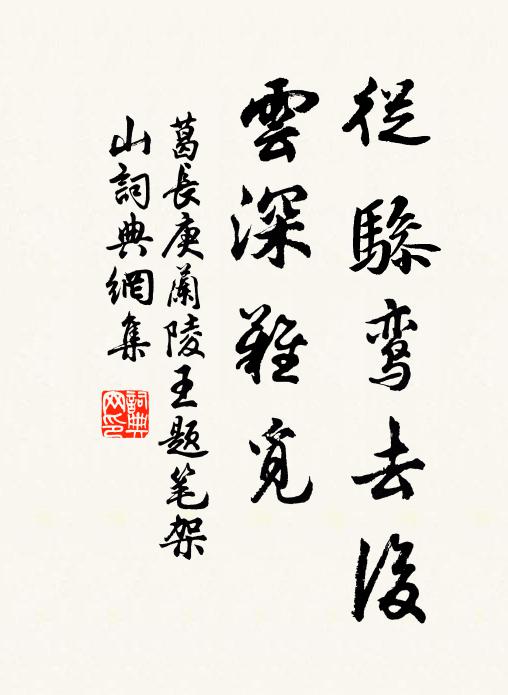 從驂鸾去後
雲深難覓
葛長庚蘭陵王题笔架
山詞典網集
詞典
网印